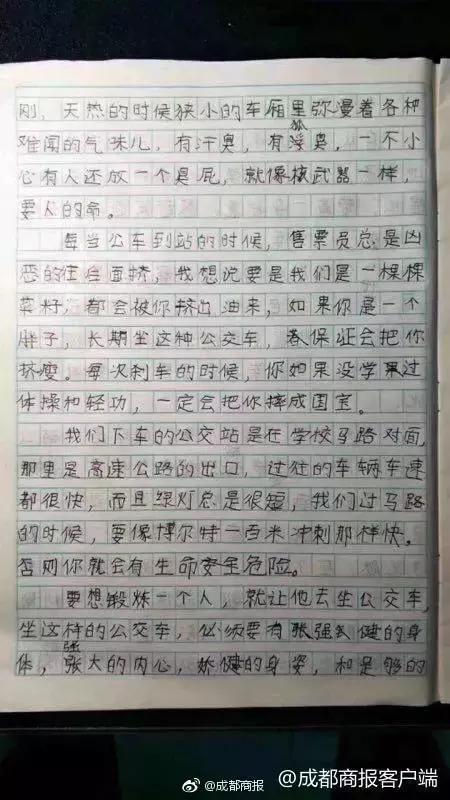 刚，天热的时候狭小的车厢里弥漫着各种
难闻的气味儿，有汗臭，有狐臭，一不小
心有人还放一个臭屁，就像核武器一样，
要人的命。
每当公车到站的时候，售票员总是凶
恶的往后面挤，我想说要是我们是一棵棵
菜籽，都会被你挤出油来，如果你是一个
胖子，长期坐这种公交车，春保证会把你
挤瘦。每次刹车的时候，你如果没学果过
体操和轻功，一定会把你摔成国宝。
我们下车的公交站是在学校马路对面，
那里是高速公路的出口，过往的车辆车速
都很快，而且绿灯总是很短，我们过马路
的时候，要像博尔特一百米冲刺那样快。
否则你就会有生命安全危险。
要想锻炼一个人，就让他去坐公交车，
坐这样的公交车，必须要有张强大健的身
体，强大的内心，矫健的身姿，和足够的
成都商报
@成都商报客户端